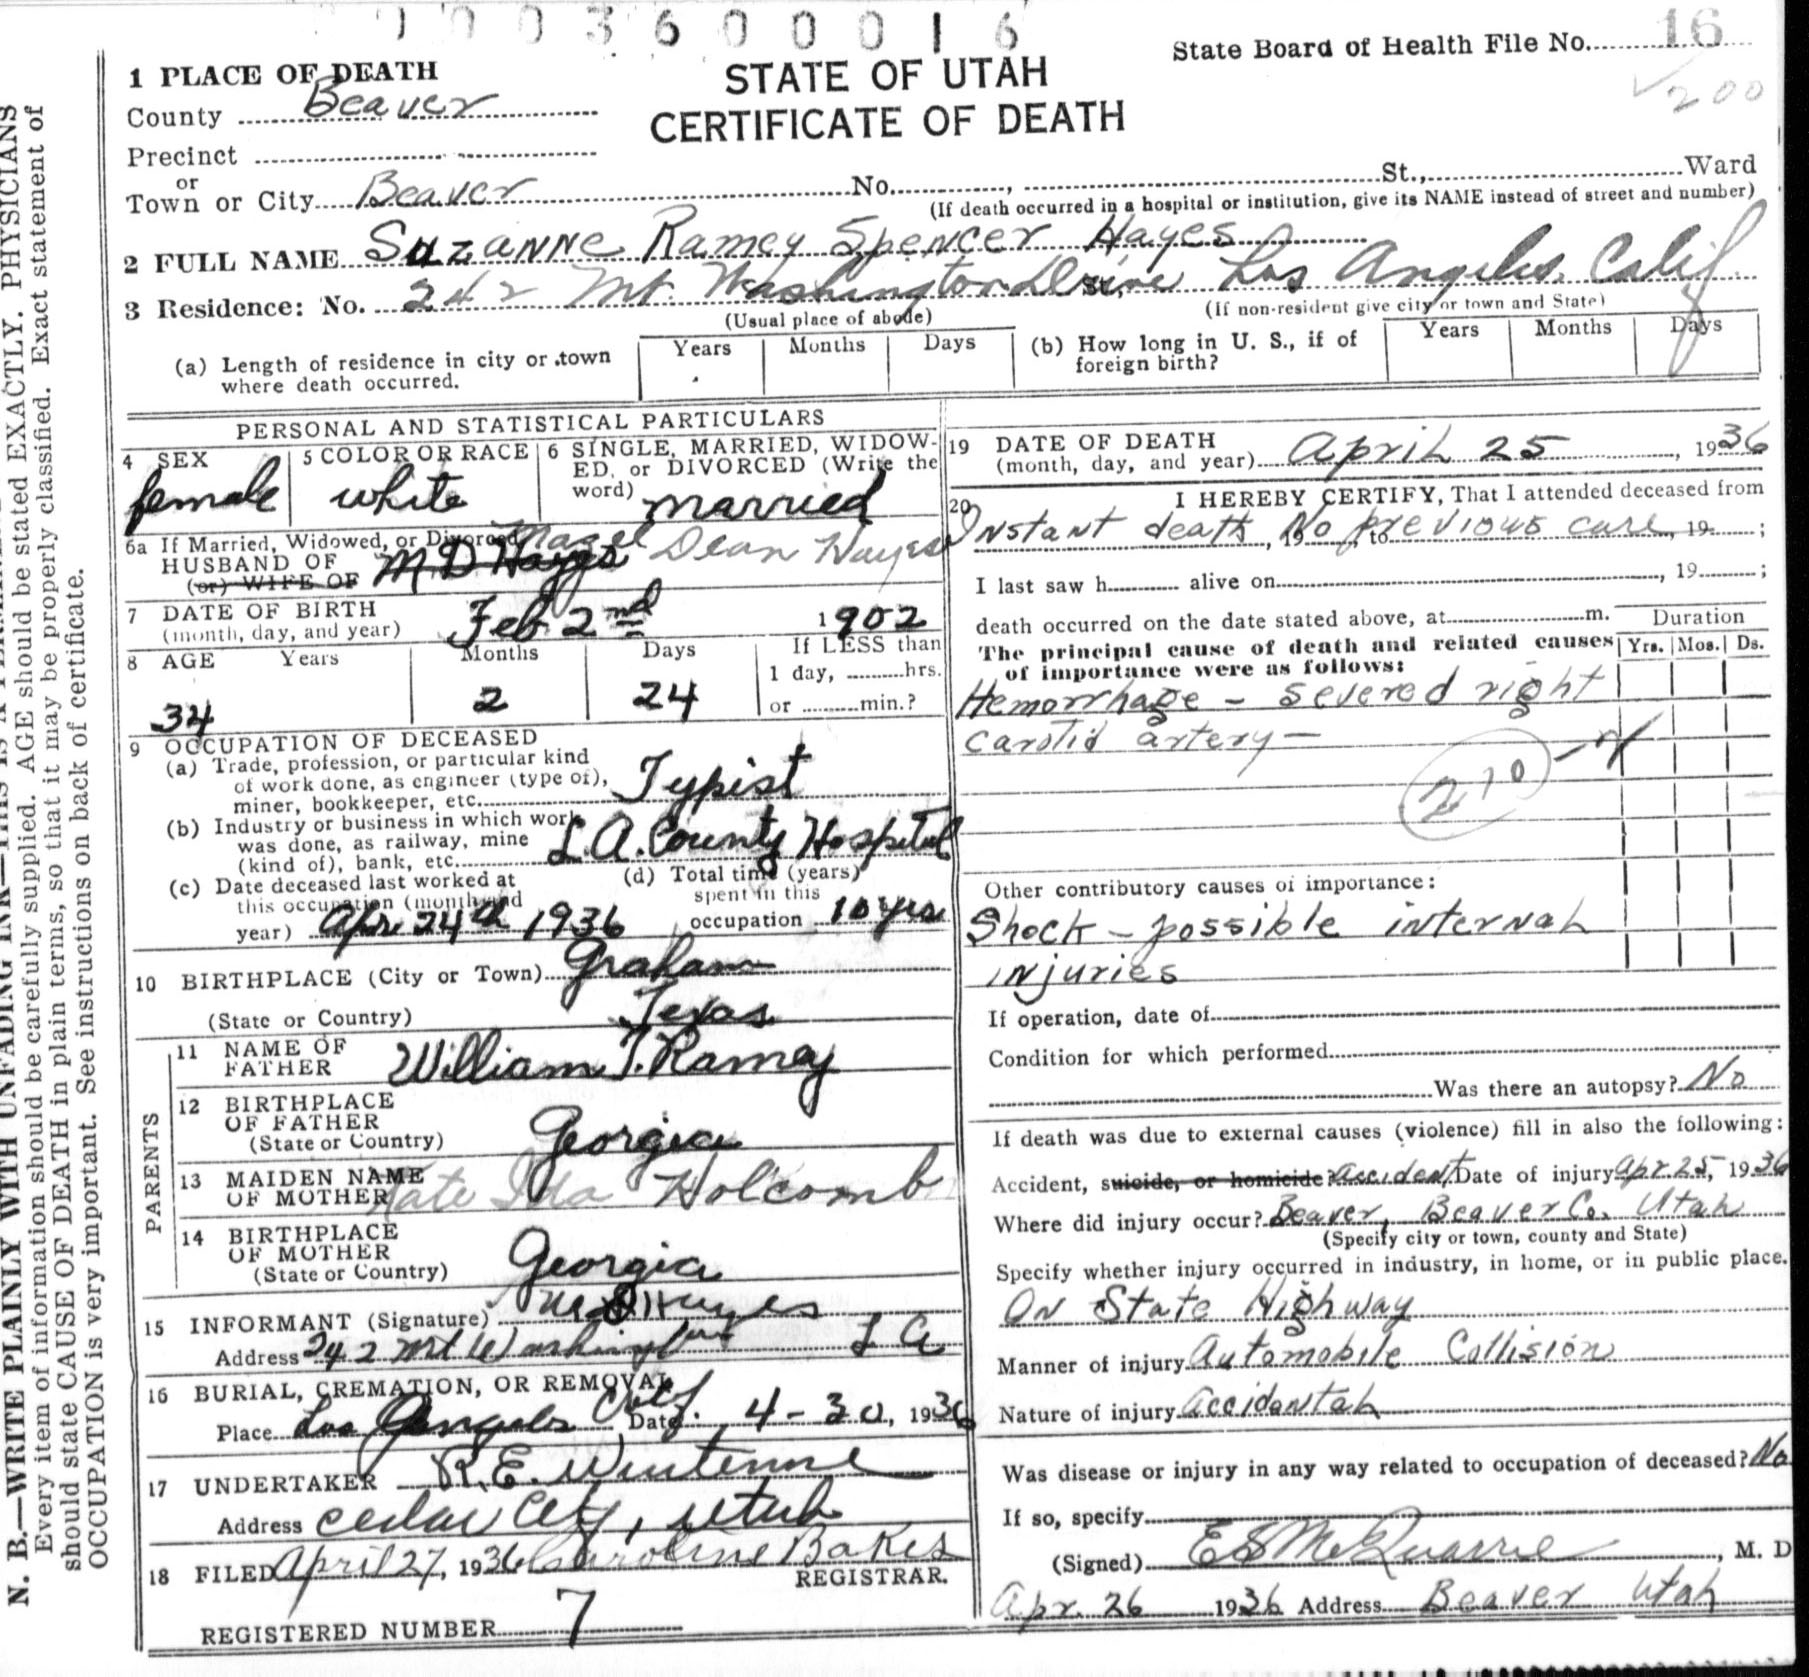 00036 00016
State Board of Health File No. 16
200
STATE OF UTAH
CERTIFICATE OF DEATH
1 PLACE OF DEATH
County Beaver
Precinct
or
Town or City Beaver No. , St., Ward
(If death occurred in a hospital or institution, give its NAME instead of street and number)
2 FULL NAME Suzanne Ramey Spencer Hayes
3 Residence: No. 242 Mt. Washington Drive St., Los Angeles, Calif
(Usual place of abode) (If non-resident give city or town and State)
(a) Length of residence in city or town where death occurred. Years Months Days
(b) How long in U. S., if of foreign birth? Years Months Days
PERSONAL AND STATISTICAL PARTICULARS
4 SEX
female
5 COLOR OR RACE
white
6 SINGLE, MARRIED, WIDOW-
ED, or DIVORCED (Write the
word) married
6a If Married, Widowed, or Divorced
HUSBAND OF M D Hayes Dean Hayes
(or) WIFE OF
7 DATE OF BIRTH
(month, day, and year) Feb 2nd 1902
8 AGE Years Months Days If LESS than
1 day, hrs.
34 2 24 or min.?
9 OCCUPATION OF DECEASED
(a) Trade, profession, or particular kind
of work done, as engineer (type of),
miner, bookkeeper, etc. Typist
(b) Industry or business in which work
was done, as railway, mine
(kind of), bank, etc. L.A. County Hospital
(c) Date deceased last worked at
this occupation (month and
year) Apr. 24th 1936
(d) Total time (years)
spent in this
occupation 10 yrs
10 BIRTHPLACE (City or Town) Graham
(State or Country) Texas
PARENTS
11 NAME OF
FATHER William T. Ramey
12 BIRTHPLACE
OF FATHER
(State or Country) Georgia
13 MAIDEN NAME
OF MOTHER Kate Ida Holcomb
14 BIRTHPLACE
OF MOTHER
(State or Country) Georgia
15 INFORMANT (Signature) M D Hayes
Address 242 Mt Washington L A
16 BURIAL, CREMATION, OR REMOVAL
Place Los Angeles Calif. Date 4-30, 1936
17 UNDERTAKER R.E.
Address Cedar City, Utah
18 FILED April 27, 1936 Caroline Bakes
REGISTRAR.
REGISTERED NUMBER 7
19 DATE OF DEATH
(month, day, and year) April 25, 1936
20 I HEREBY CERTIFY, That I attended deceased from
Instant death, 19 No previous care, 19 ;
to
I last saw h alive on , 19 ;
death occurred on the date stated above, at m.
Duration
The principal cause of death and related causes
of importance were as follows:
Yrs. Mos. Ds.
Hemorrhage - severed right
carotid artery -
210
Other contributory causes of importance:
Shock - possible internal
injuries
If operation, date of
Condition for which performed
Was there an autopsy? No
If death was due to external causes (violence) fill in also the following:
Accident, suicide, or homicide? Accident. Date of injury Apr. 25, 1936
Where did injury occur? Beaver, Beaver Co. Utah
(Specify city or town, county and State)
Specify whether injury occurred in industry, in home, or in public place.
On State Highway
Manner of injury Automobile Collision
Nature of injury Accidental
Was disease or injury in any way related to occupation of deceased? No
If so, specify
(Signed) E S McQuarrie, M. D
Apr. 26 1936 Address Beaver Utah
N. B.—WRITE PLAINLY WITH UNFADING INK—THIS IS A
Every item of information should be carefully supplied. AGE should be stated EXACTLY. PHYSICIANS
should state CAUSE OF DEATH in plain terms, so that it may be properly classified. Exact statement of
OCCUPATION is very important. See instructions on back of certificate.